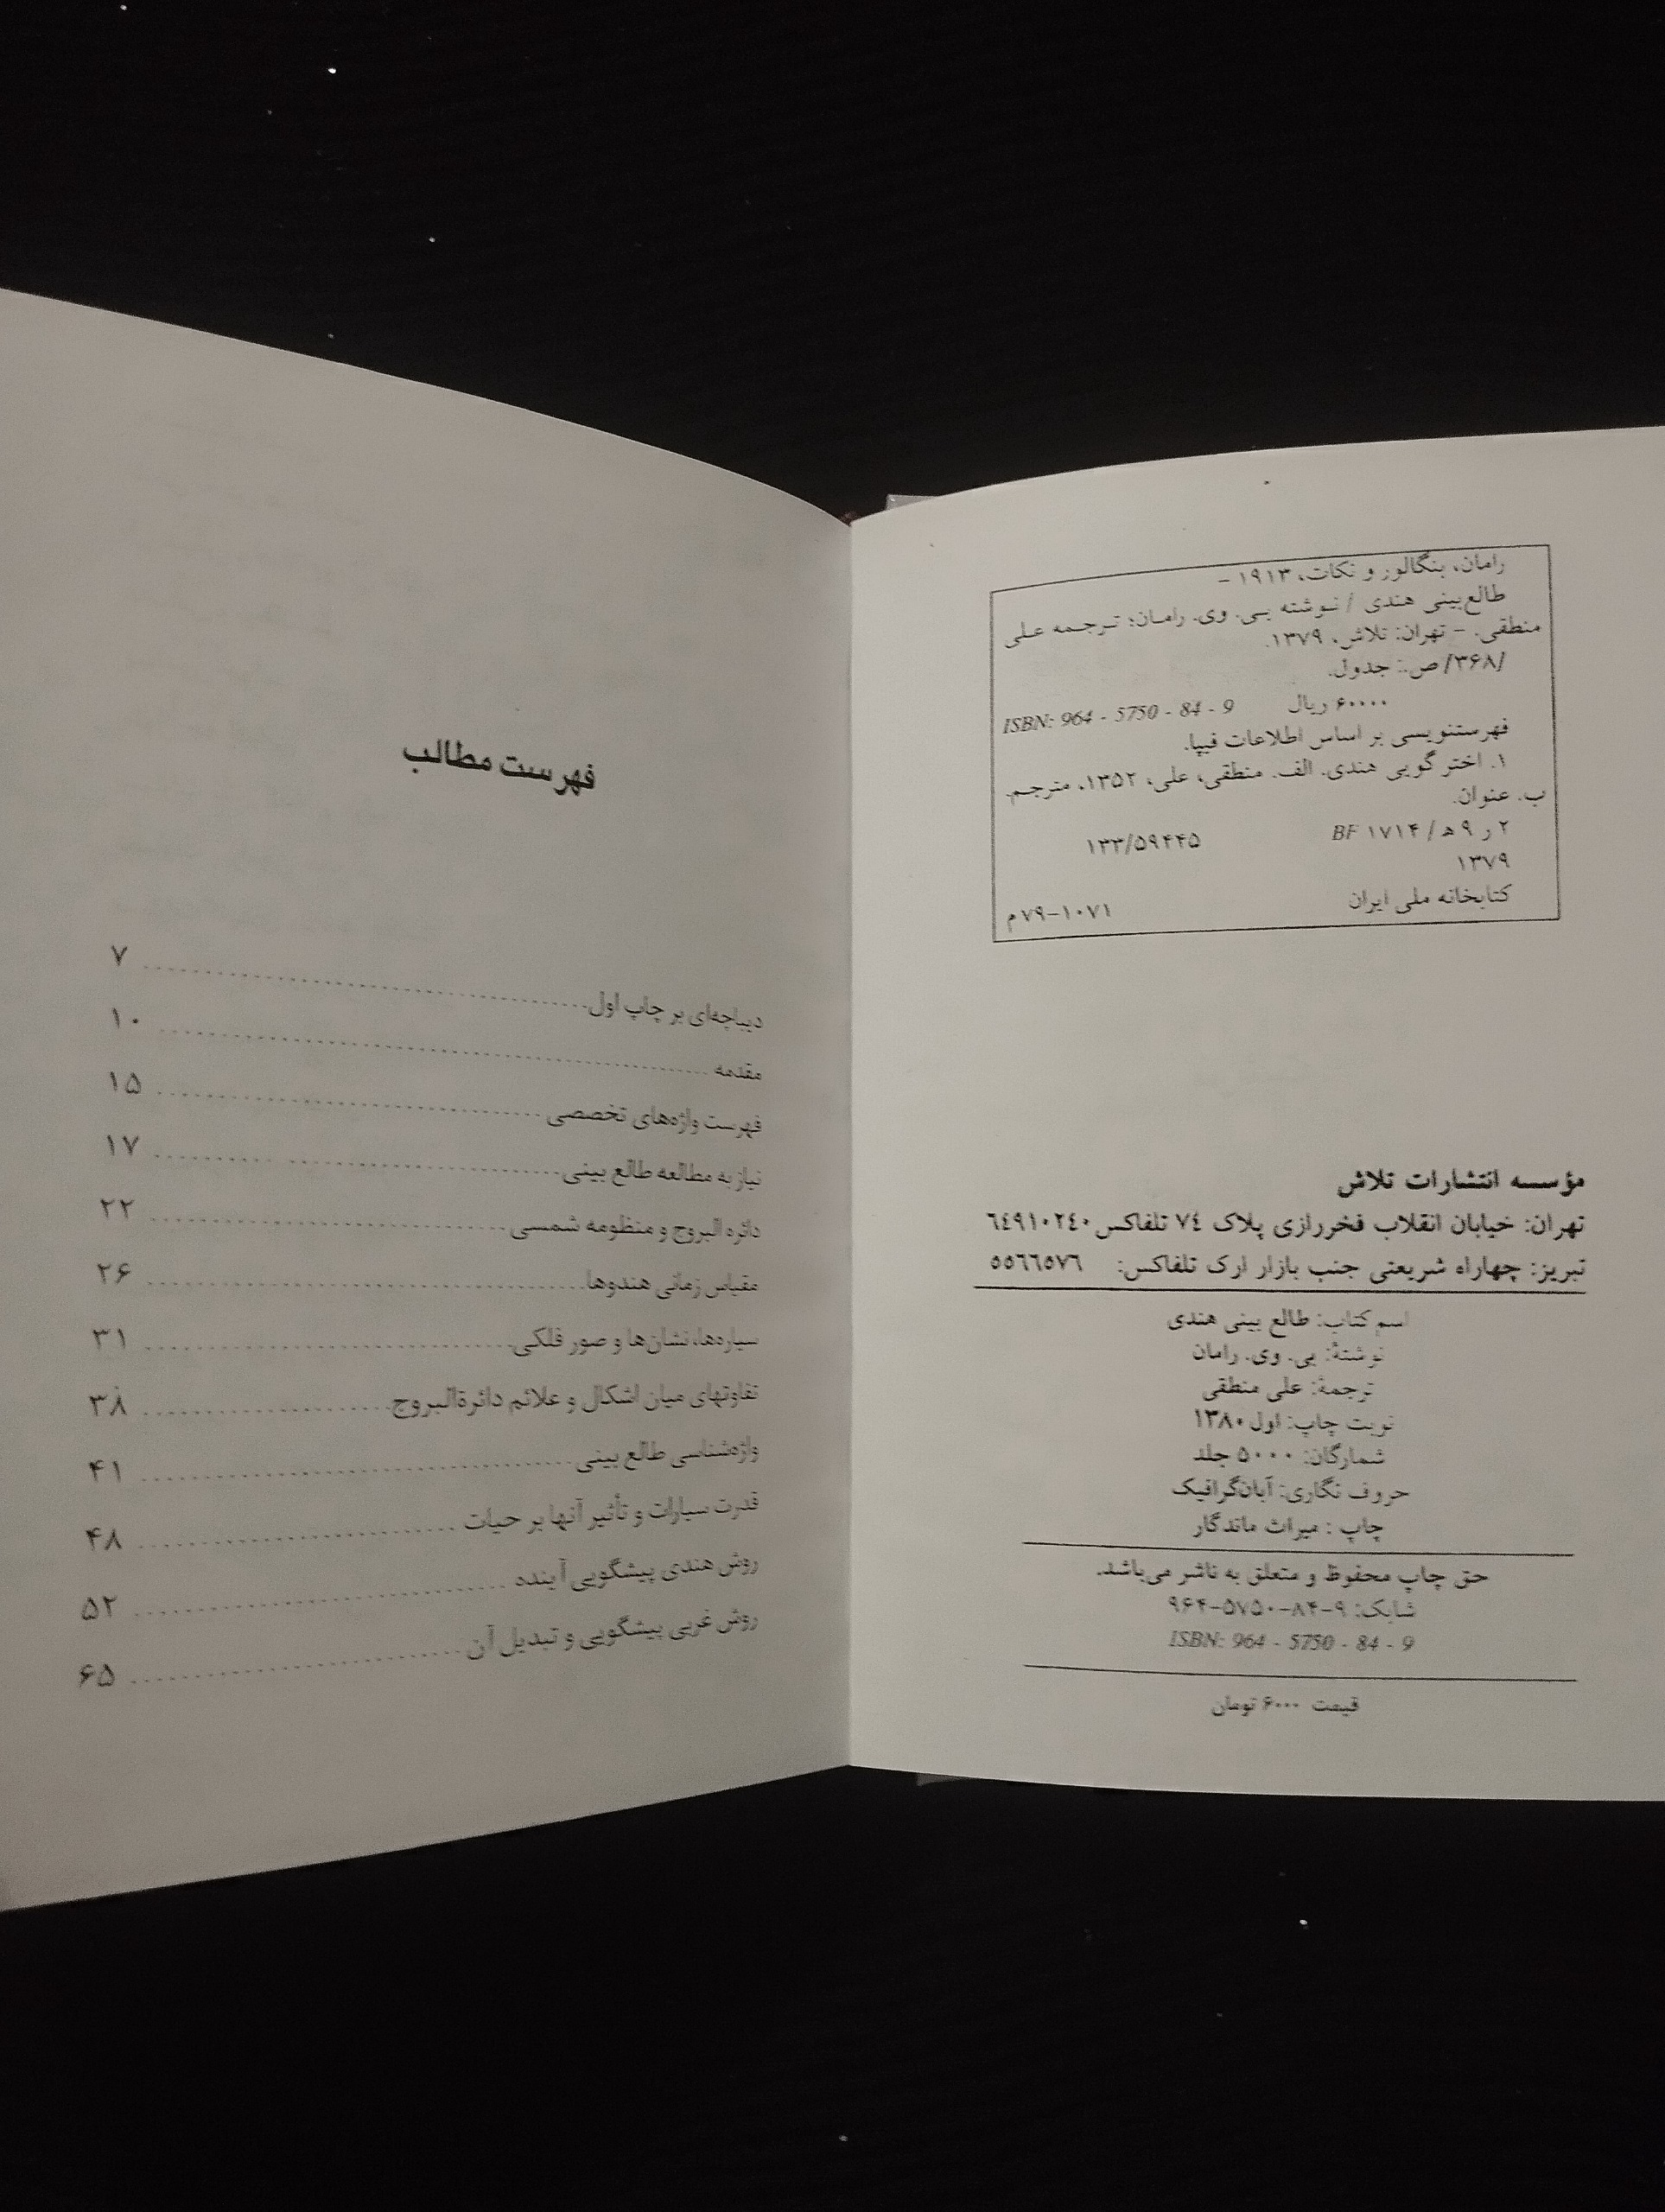 رامان، بنگالور و نکات، ۱۹۱۳ -
طالع‌بینی هندی / نوشته بی. وی. رامان؛ ترجمه علی
منطقی. - تهران: تلاش، ۱۳۷۹.
/۳۶۸/ ص.: جدول.
۶۰۰۰۰ ریال ISBN: 964 - 5750 - 84 - 9
فهرستنویسی بر اساس اطلاعات فیپا.
۱. اختر گویی هندی. الف. منطقی، علی، ۱۳۵۲، مترجم.
ب. عنوان.
۲ ر ۹ ه / BF ۱۷۱۴ ۱۳۳/۵۹۴۴۵
۱۳۷۹
کتابخانه ملی ایران ۱۰۷۱-۷۹ م
مؤسسه انتشارات تلاش
تهران: خیابان انقلاب فخررازی پلاک ٧٤ تلفاکس ٦٤٩١٠٢٤٠
تبریز: چهاراه شریعتی جنب بازار ارک تلفاکس: ٥٥٦٦٥٧٦
اسم کتاب: طالع بینی هندی
نوشتهٔ: بی. وی. رامان
ترجمهٔ: علی منطقی
نوبت چاپ: اول ۱۳۸۰
شمارگان: ۵۰۰۰ جلد
حروف نگاری: آبان‌گرافیک
چاپ : میراث ماندگار
حق چاپ محفوظ و متعلق به ناشر می‌باشد.
شابک: ۹-۸۴-۵۷۵۰-۹۶۴
ISBN: 964 - 5750 - 84 - 9
قیمت ۶۰۰۰ تومان
فهرست مطالب
دیباچه‌ای بر چاپ اول ........ ۷
مقدمه ........ ۱۰
فهرست واژه‌های تخصصی ........ ۱۵
نیاز به مطالعه طالع بینی ........ ۱۷
دائره البروج و منظومه شمسی ........ ۲۲
مقیاس زمانی هندوها ........ ۲۶
سیاره‌ها، نشان‌ها و صور فلکی ........ ۳۱
تفاوتهای میان اشکال و علائم دائرةالبروج ........ ۳۸
واژه‌شناسی طالع بینی ........ ۴۱
قدرت سیارات و تأثیر آنها بر حیات ........ ۴۸
روش هندی پیشگویی آینده ........ ۵۲
روش غربی پیشگویی و تبدیل آن ........ ۶۵